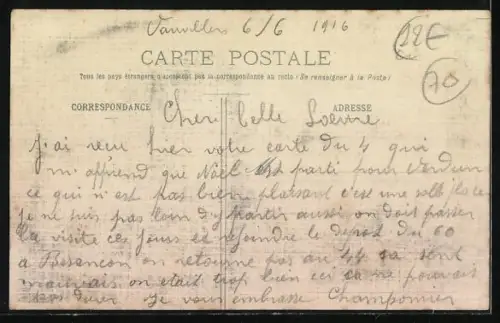 Vauvillers 6/6 1916
22E
70
CARTE POSTALE
Tous les pays étrangers n'acceptent pas la correspondance au recto (Se renseigner à la Poste)
CORRESPONDANCE
ADRESSE
Cher Belle Soeur
J'ai recu hier votre carte du 4 qui
m'apprend que Noël est parti pour Verdun
ce qui n'est pas bien plaisant c'est une
je ne suis pas loin d'y partir aussi on doit passer
la visite ces jours et rejoindre le depot du 60
a Besancon on retourne pas au 44 sa sent
mauvais on etait trop bien ici ca ne pouvait
pas durer Je vous embrasse Champonnier